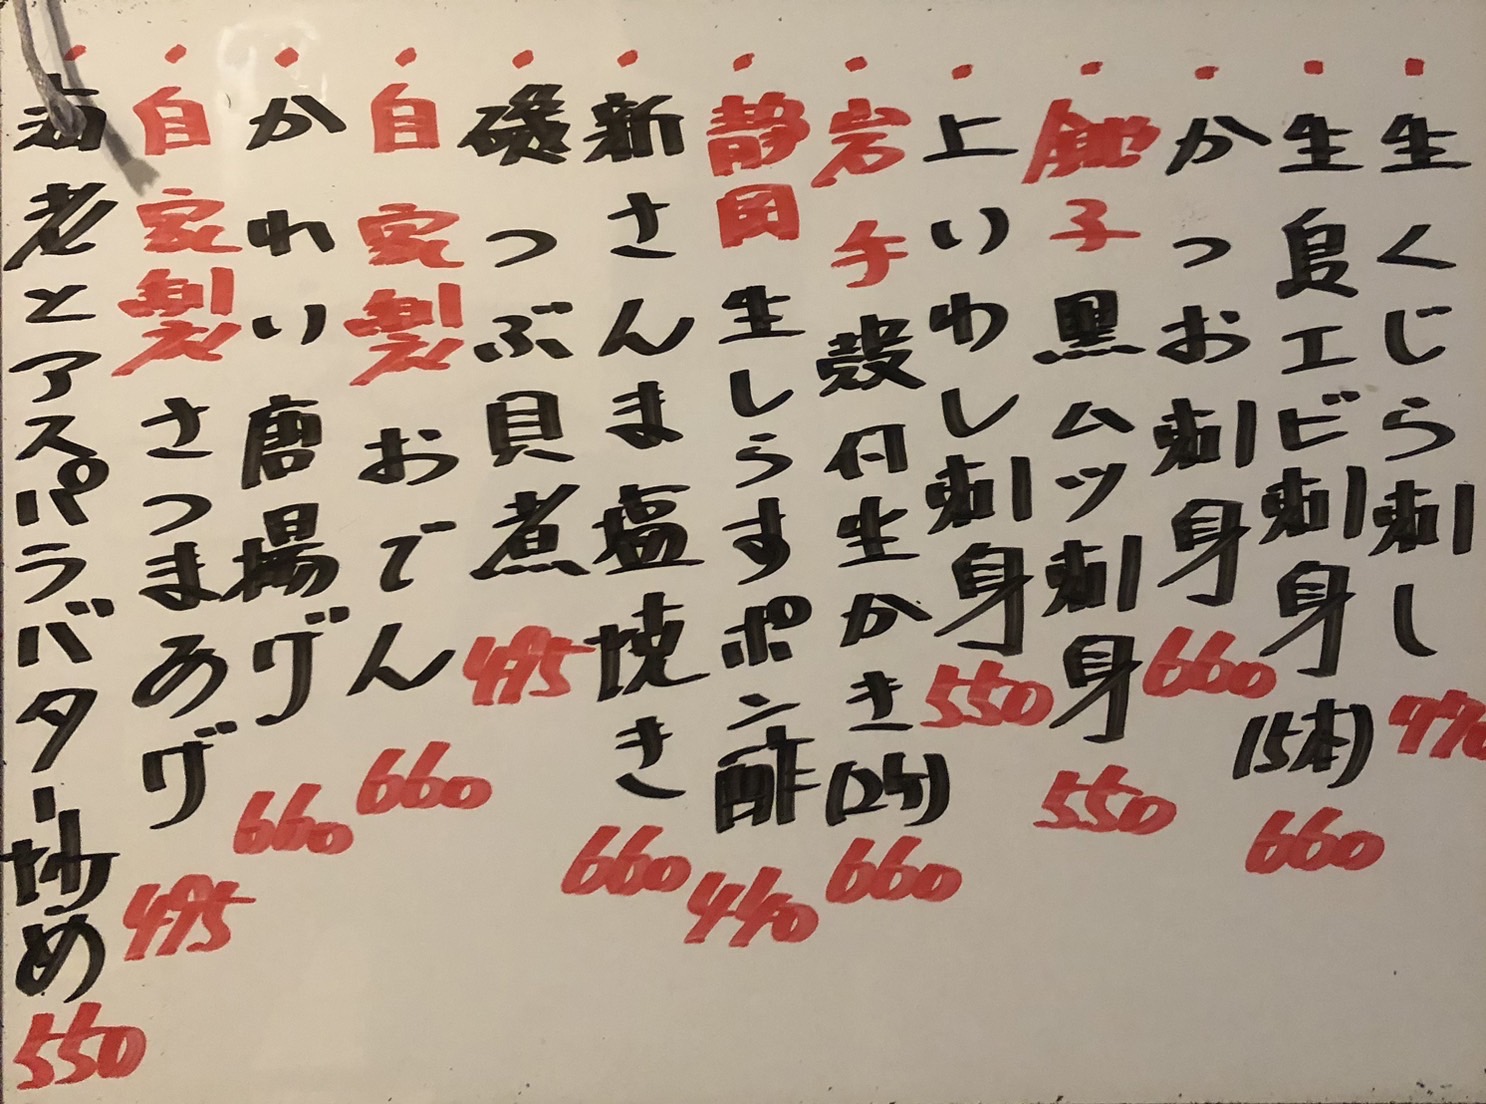 ・生くじら刺し 770
・生島エビ刺身(15本) 660
・かつお刺身 660
・銚子黒ムツ刺身 550
・上いわし刺身 550
・岩手殻付生かき(2ケ) 660
・静岡生しらすポン酢 440
・新さんま塩焼き 660
・磯つぶ貝煮 495
・自家製おでん 660
・かれい唐揚げ 660
・自家製さつまあげ 495
・海老とアスパラバター炒め 550